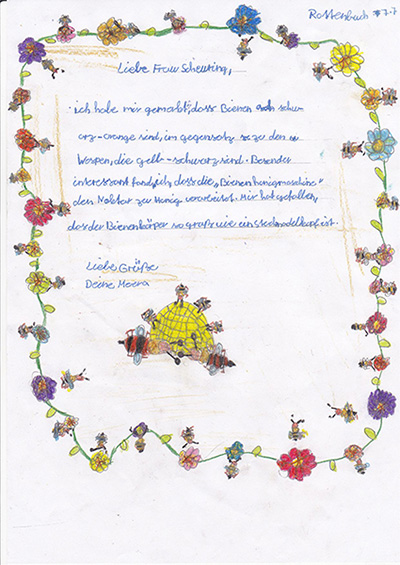 Rottenbuch 17.7
Liebe Frau Scheuring,
ich habe mir gemerkt, dass Bienen schw
arz-orange sind, im gegensatz zu den
Wespen, die gelb-schwarz sind. Besonder
interessant fand ich, dass die „Bienenhonigmaschine"
den Nektar zu Honig verarbeitet. Mir hat gefallen,
das der Bienenkörper so groß wie ein Stecknadelkopf ist.
Liebe Grüße
Deine Meera